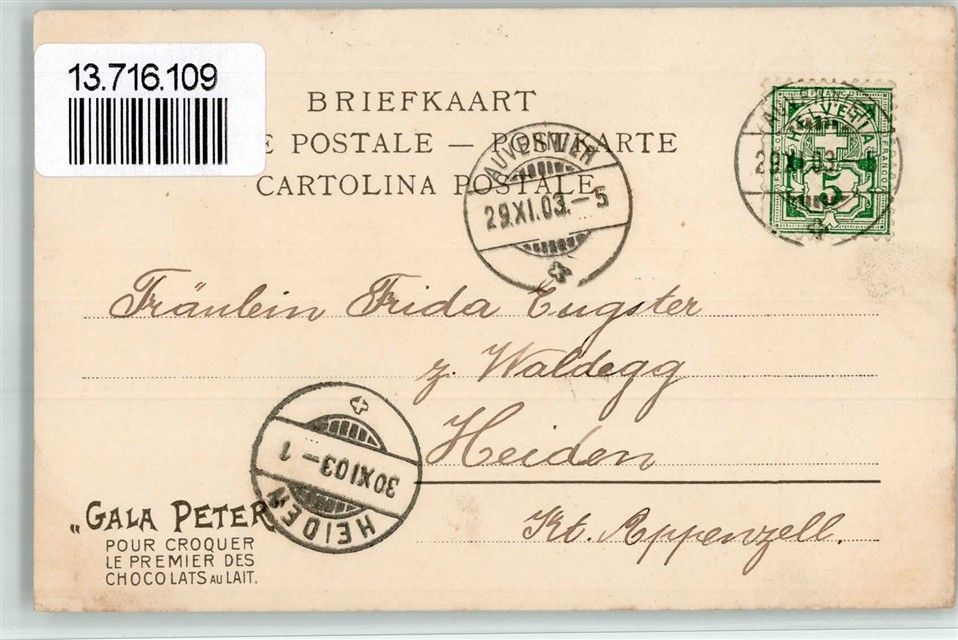 13.716.109
BRIEFKAART
E POSTALE — POSTKARTE
CARTOLINA POSTALE
HELVETIA
FRANCO
5
29.XI.03.-5
AUVERNIER
29.XI.03.-5
Fräulein Frida Eugster
z. Waldegg
Heiden
Kt. Appenzell.
30.XI.03-1
HEIDEN
„GALA PETER"
POUR CROQUER
LE PREMIER DES
CHOCOLATS AU LAIT.